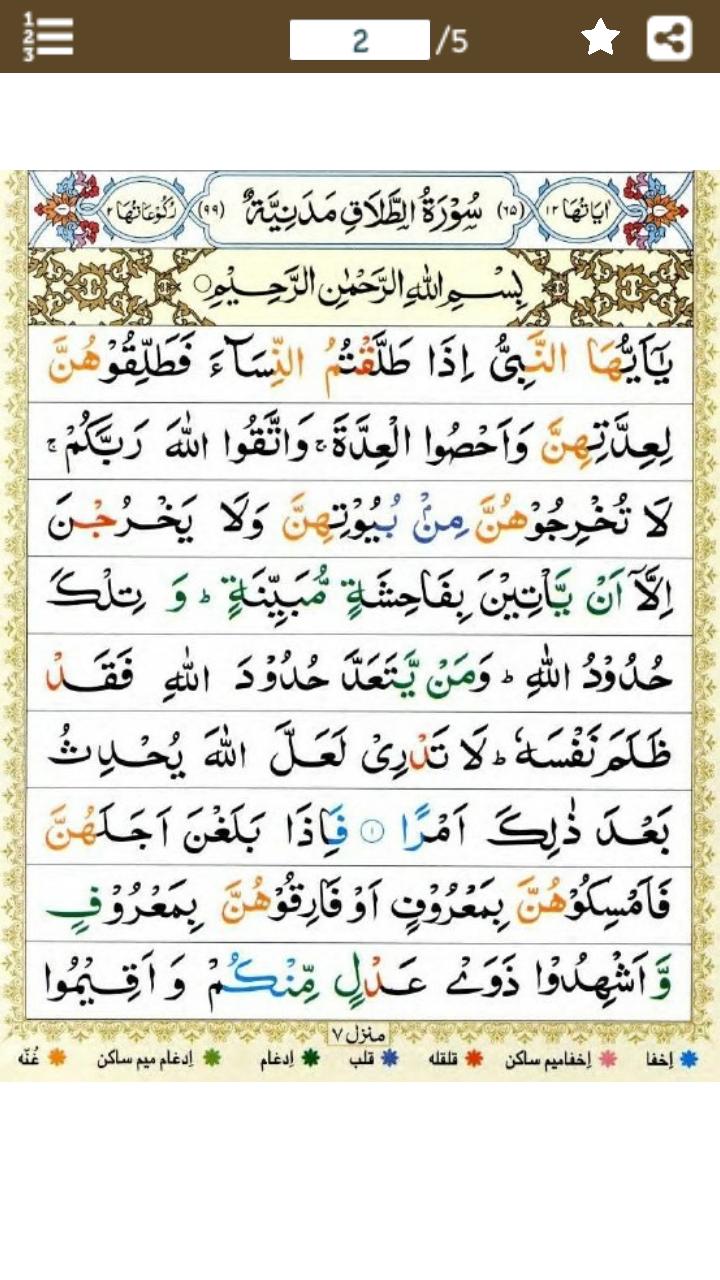 1
2
3
2 /5
اٰيَاتُهَا ١٢ (٦٥) سُوْرَةُ الطَّلَاقِ مَدَنِيَّةٌ (٩٩) رُكُوْعَاتُهَا ٢
بِسْمِ اللّٰهِ الرَّحْمٰنِ الرَّحِيْمِ
يٰۤاَيُّهَا النَّبِىُّ اِذَا طَلَّقْتُمُ النِّسَآءَ فَطَلِّقُوْهُنَّ
لِعِدَّتِهِنَّ وَاَحْصُوا الْعِدَّةَ ۚ وَاتَّقُوا اللّٰهَ رَبَّكُمْ ۚ
لَا تُخْرِجُوْهُنَّ مِنْۢ بُيُوْتِهِنَّ وَلَا يَخْرُجْنَ
اِلَّاۤ اَنْ يَّاْتِيْنَ بِفَاحِشَةٍ مُّبَيِّنَةٍ ؕ وَ تِلْكَ
حُدُوْدُ اللّٰهِ ؕ وَمَنْ يَّتَعَدَّ حُدُوْدَ اللّٰهِ فَقَدْ
ظَلَمَ نَفْسَهٗ ؕ لَا تَدْرِىْ لَعَلَّ اللّٰهَ يُحْدِثُ
بَعْدَ ذٰلِكَ اَمْرًا ١ فَاِذَا بَلَغْنَ اَجَلَهُنَّ
فَاَمْسِكُوْهُنَّ بِمَعْرُوْفٍ اَوْ فَارِقُوْهُنَّ بِمَعْرُوْفٍ
وَّ اَشْهِدُوْا ذَوَىْ عَدْلٍ مِّنْكُمْ وَ اَقِيْمُوا
منزل ٧
إخفا إخفاميم ساكن قلقله قلب إدغام إدغام ميم ساكن غُنّه